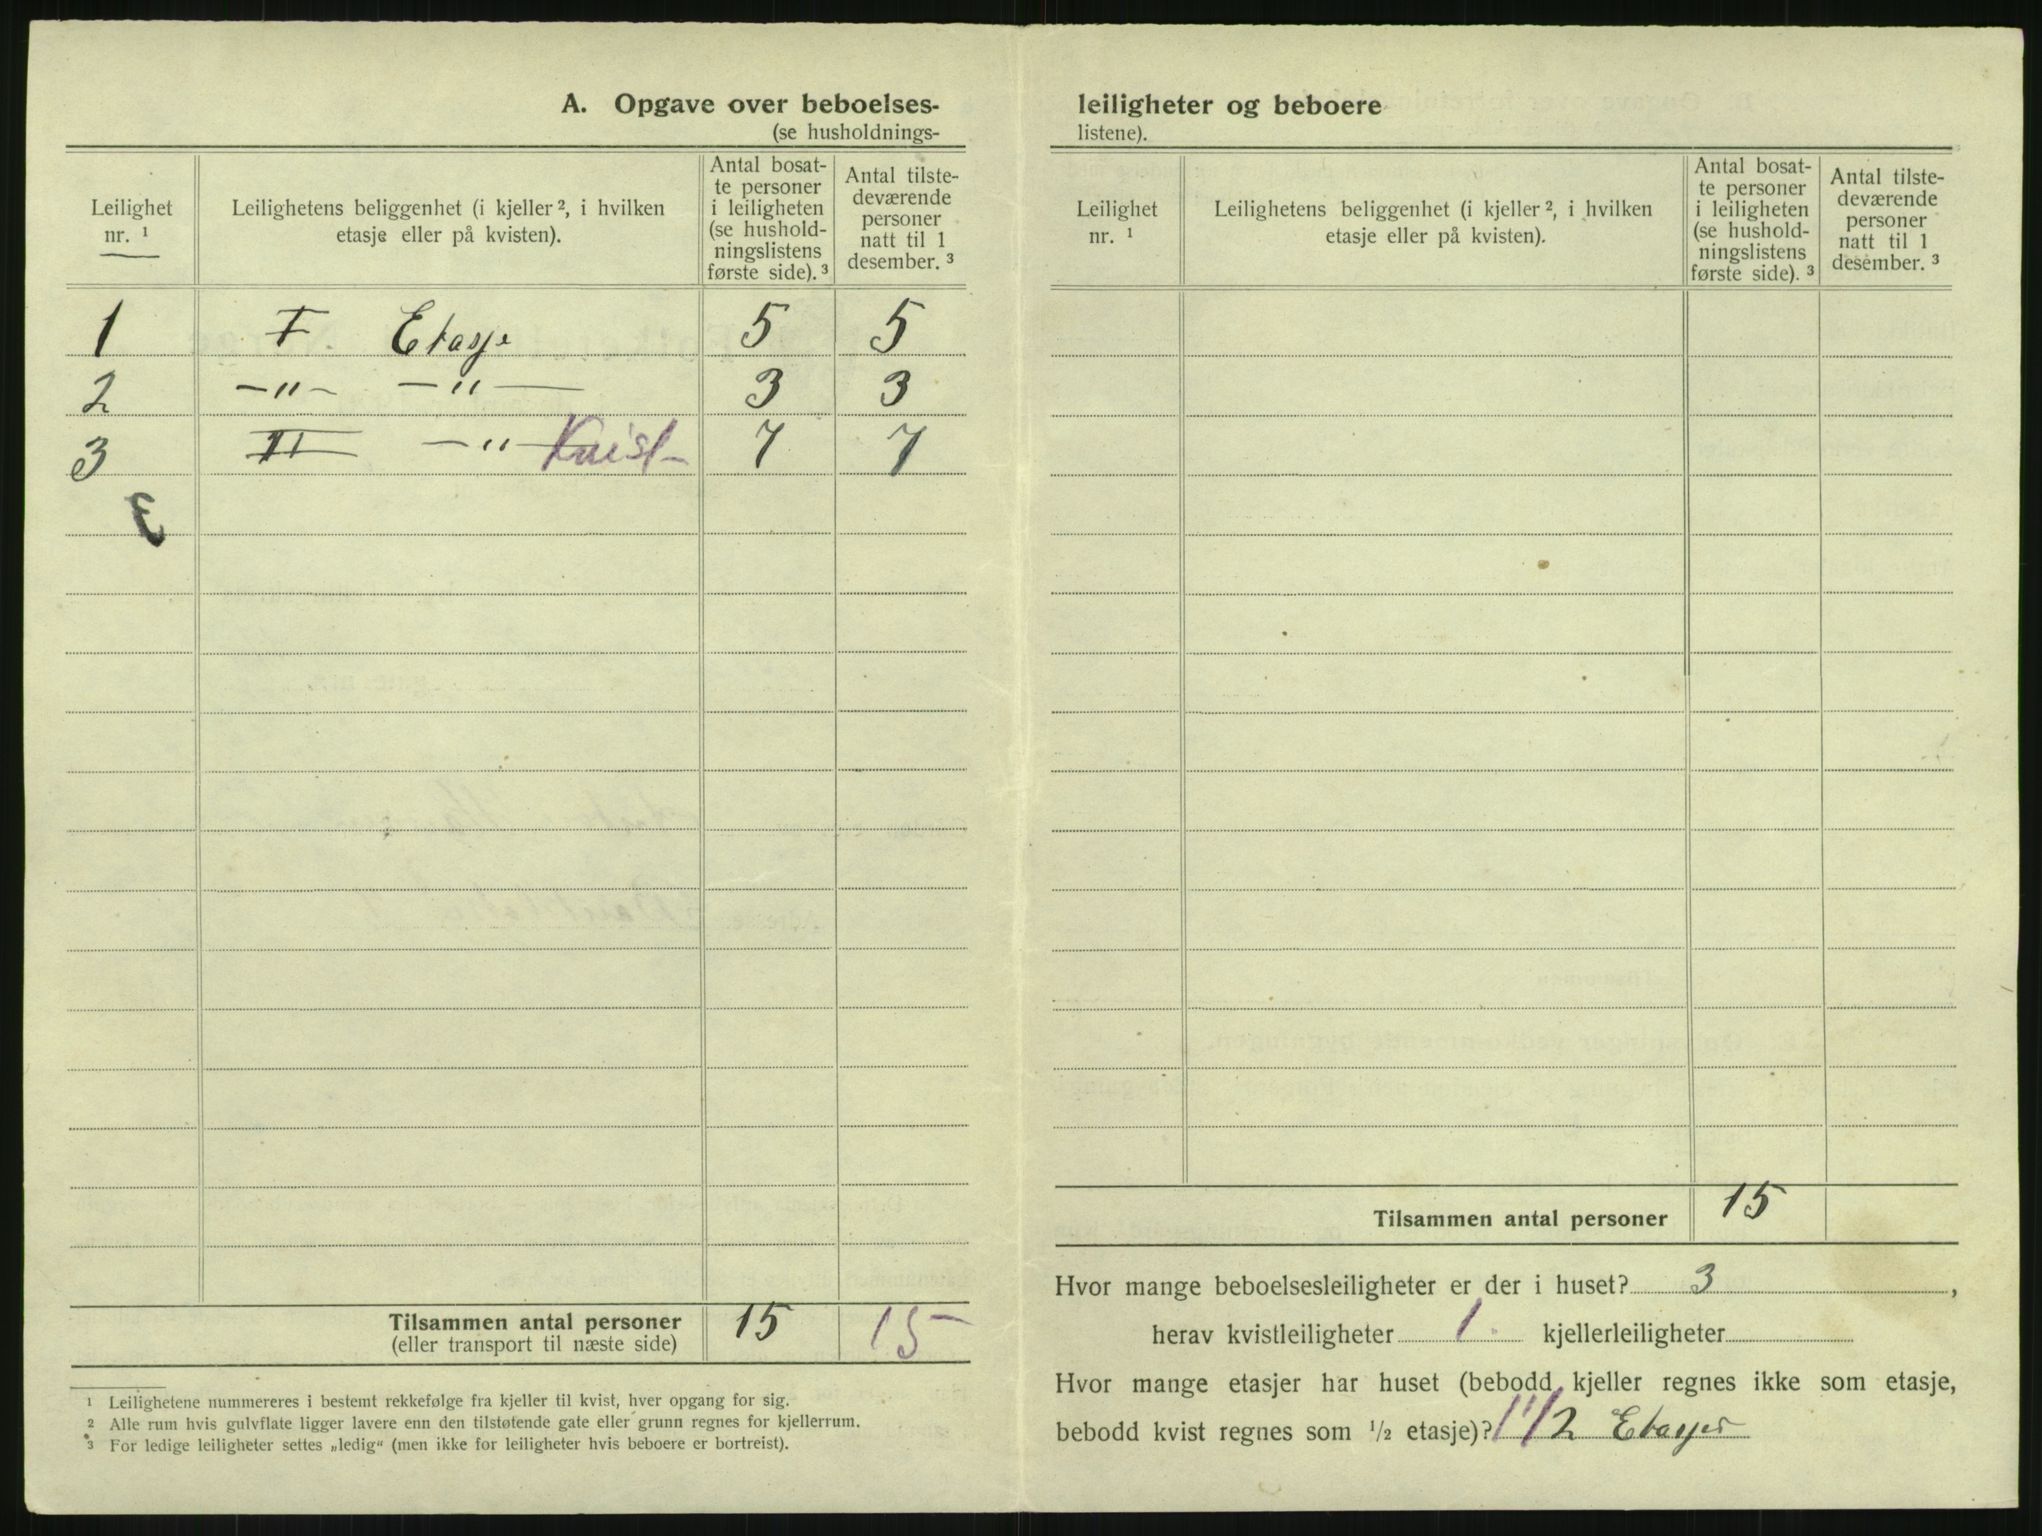 A. Opgave over beboelses-
(se husholdnings-
Leilighet nr. ¹
Leilighetens beliggenhet (i kjeller ², i hvilken etasje eller på kvisten).
Antal bosatte personer i leiligheten (se husholdningslistens første side). ³
Antal tilstedeværende personer natt til 1 desember. ³
1 I Etasje 5 5
2 —„— —„— 3 3
3 II —„— Kvist 7 7
Tilsammen antal personer 15 15
(eller transport til næste side)
¹ Leilighetene nummereres i bestemt rekkefølge fra kjeller til kvist, hver opgang for sig.
² Alle rum hvis gulvflate ligger lavere enn den tilstøtende gate eller grunn regnes for kjellerrum.
³ For ledige leiligheter settes „ledig“ (men ikke for leiligheter hvis beboere er bortreist).
leiligheter og beboere
listene).
Leilighet nr. ¹
Leilighetens beliggenhet (i kjeller ², i hvilken etasje eller på kvisten).
Antal bosatte personer i leiligheten (se husholdningslistens første side). ³
Antal tilstedeværende personer natt til 1 desember. ³
Tilsammen antal personer 15
Hvor mange beboelsesleiligheter er der i huset? 3,
herav kvistleiligheter 1 kjellerleiligheter
Hvor mange etasjer har huset (bebodd kjeller regnes ikke som etasje,
bebodd kvist regnes som ½ etasje)? 1 1/2 Etasjer